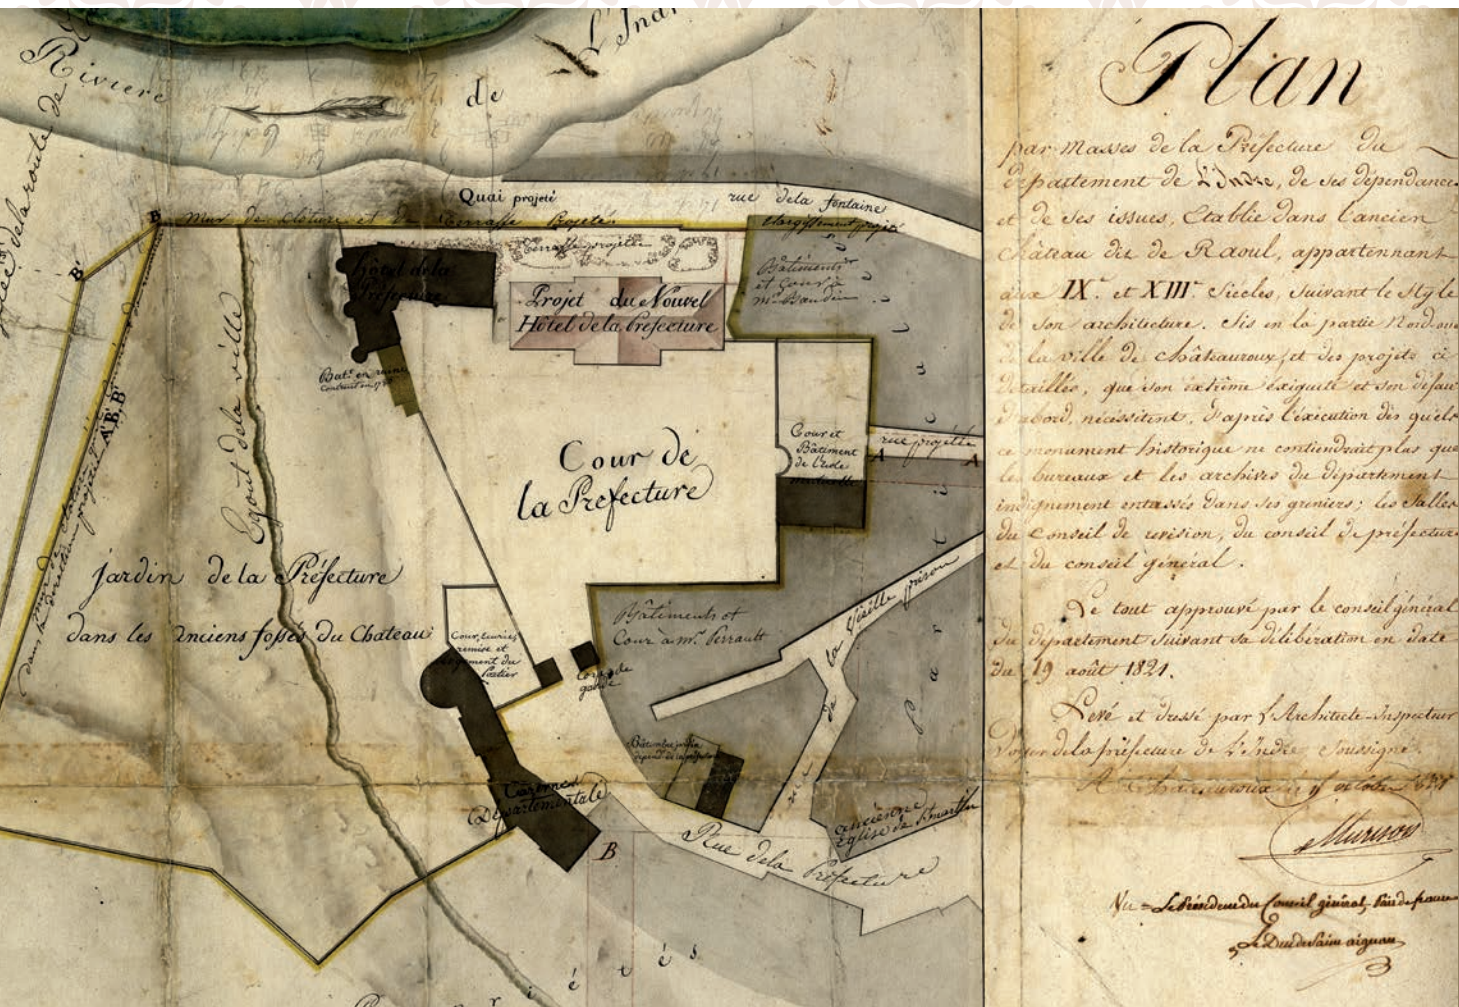 Rivière
de
L'Ind
Quai projeté
rue dela fontaine
Mur de clôture et de Terrasse Projetés
Elargissement projeté
Terrasse projetée
B
B'
hôtel de la
Préfecture
Projet du Nouvel
Hôtel de la Prefecture
Bâtiments
et Cour à
Mr
Batt. en ruine
Construit en
Egout dela ville
A'B'B'
Cour de
la Prefecture
Cour et
Bâtiment
de l'Ecole
mutuelle
rue projettée
A
A
jardin de la Préfecture
dans les Anciens fossés du Chateau
Cour, écuries,
remise et
logement du
Portier
Corps de
garde
Bâtiments et
Cour à mr. Perrault
rue de la Vieille prison
Casernes
Départementale
B
Rue dela Préfecture
ancienne
Eglise de St martin
Plan
par Masses de la Préfecture du
département de L'Indre, de ses dépendances
et de ses issues, Etablie dans l'ancien
Château dit de Raoul, appartennant
aux IXe. et XIIIe. Siècles, suivant le style
de son architecture. Sis en la partie Nord-
de la ville de châteauroux, et des projets ci
détaillés, que son extrême éxiguité et son défaut
d'abord, nécessitent, d'après l'éxécution des quels
ce monument historique ne contiendrait plus que
les bureaux et les archives du département
indignement entassés dans ses greniers; les Salles
du Conseil de revision, du conseil de préfecture
et du conseil général.
Le tout approuvé par le conseil général
du département suivant sa délibération en date
du 19 août 1821.
Levé et dressé par l'Architecte-Inspecteur
Voyer dela préfecture de l'Indre soussigné.
Vu = Le Président du Conseil général, Pair de france
Le Duc de Saint aignan